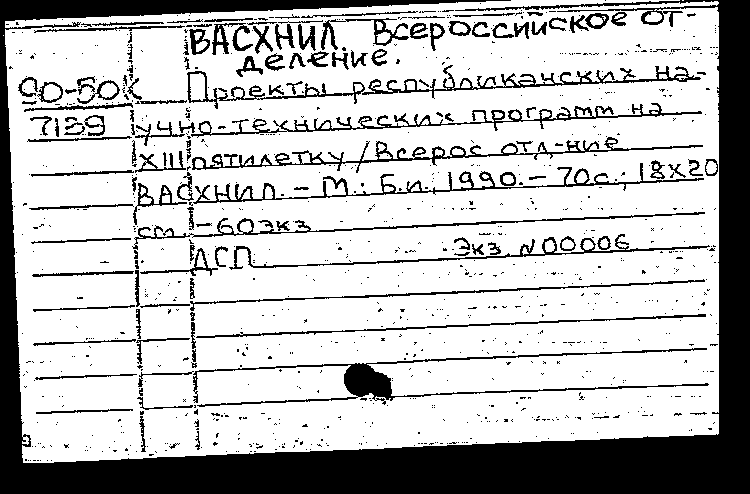 ВАСХНИЛ. Всероссийское от-
деление.
90-50К Проекты республиканских на-
7139 учно-технических программ на
XIII пятилетку / Всерос. отд-ние
ВАСХНИЛ. - М.: Б.и., 1990. - 70с.; 18х20
см. - 60экз
ДСП Экз. №00006